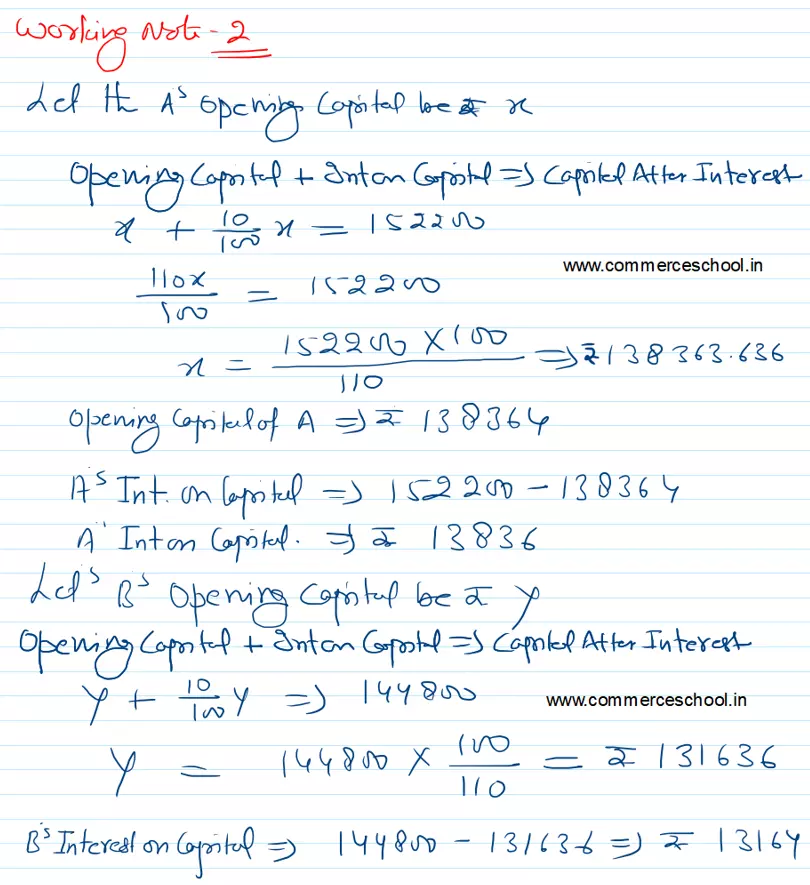 Working Note - 2
Let the A's Opening Capital be ₹ x
Opening Capital + Int on Capital => Capital After Interest
x + 10/100 x = 152200
www.commerceschool.in
110x/100 = 152200
x = 152200 X 100/110 => ₹138363.636
Opening Capital of A => ₹ 138364
A's Int. on Capital => 152200 - 138364
A' Int on Capital. => ₹ 13836
Let's B's Opening Capital be ₹ y
Opening Capital + Int on Capital => Capital After Interest
y + 10/100 y => 144800
www.commerceschool.in
y = 144800 X 100/110 = ₹ 131636
B's Interest on Capital => 144800 - 131636 => ₹ 13164